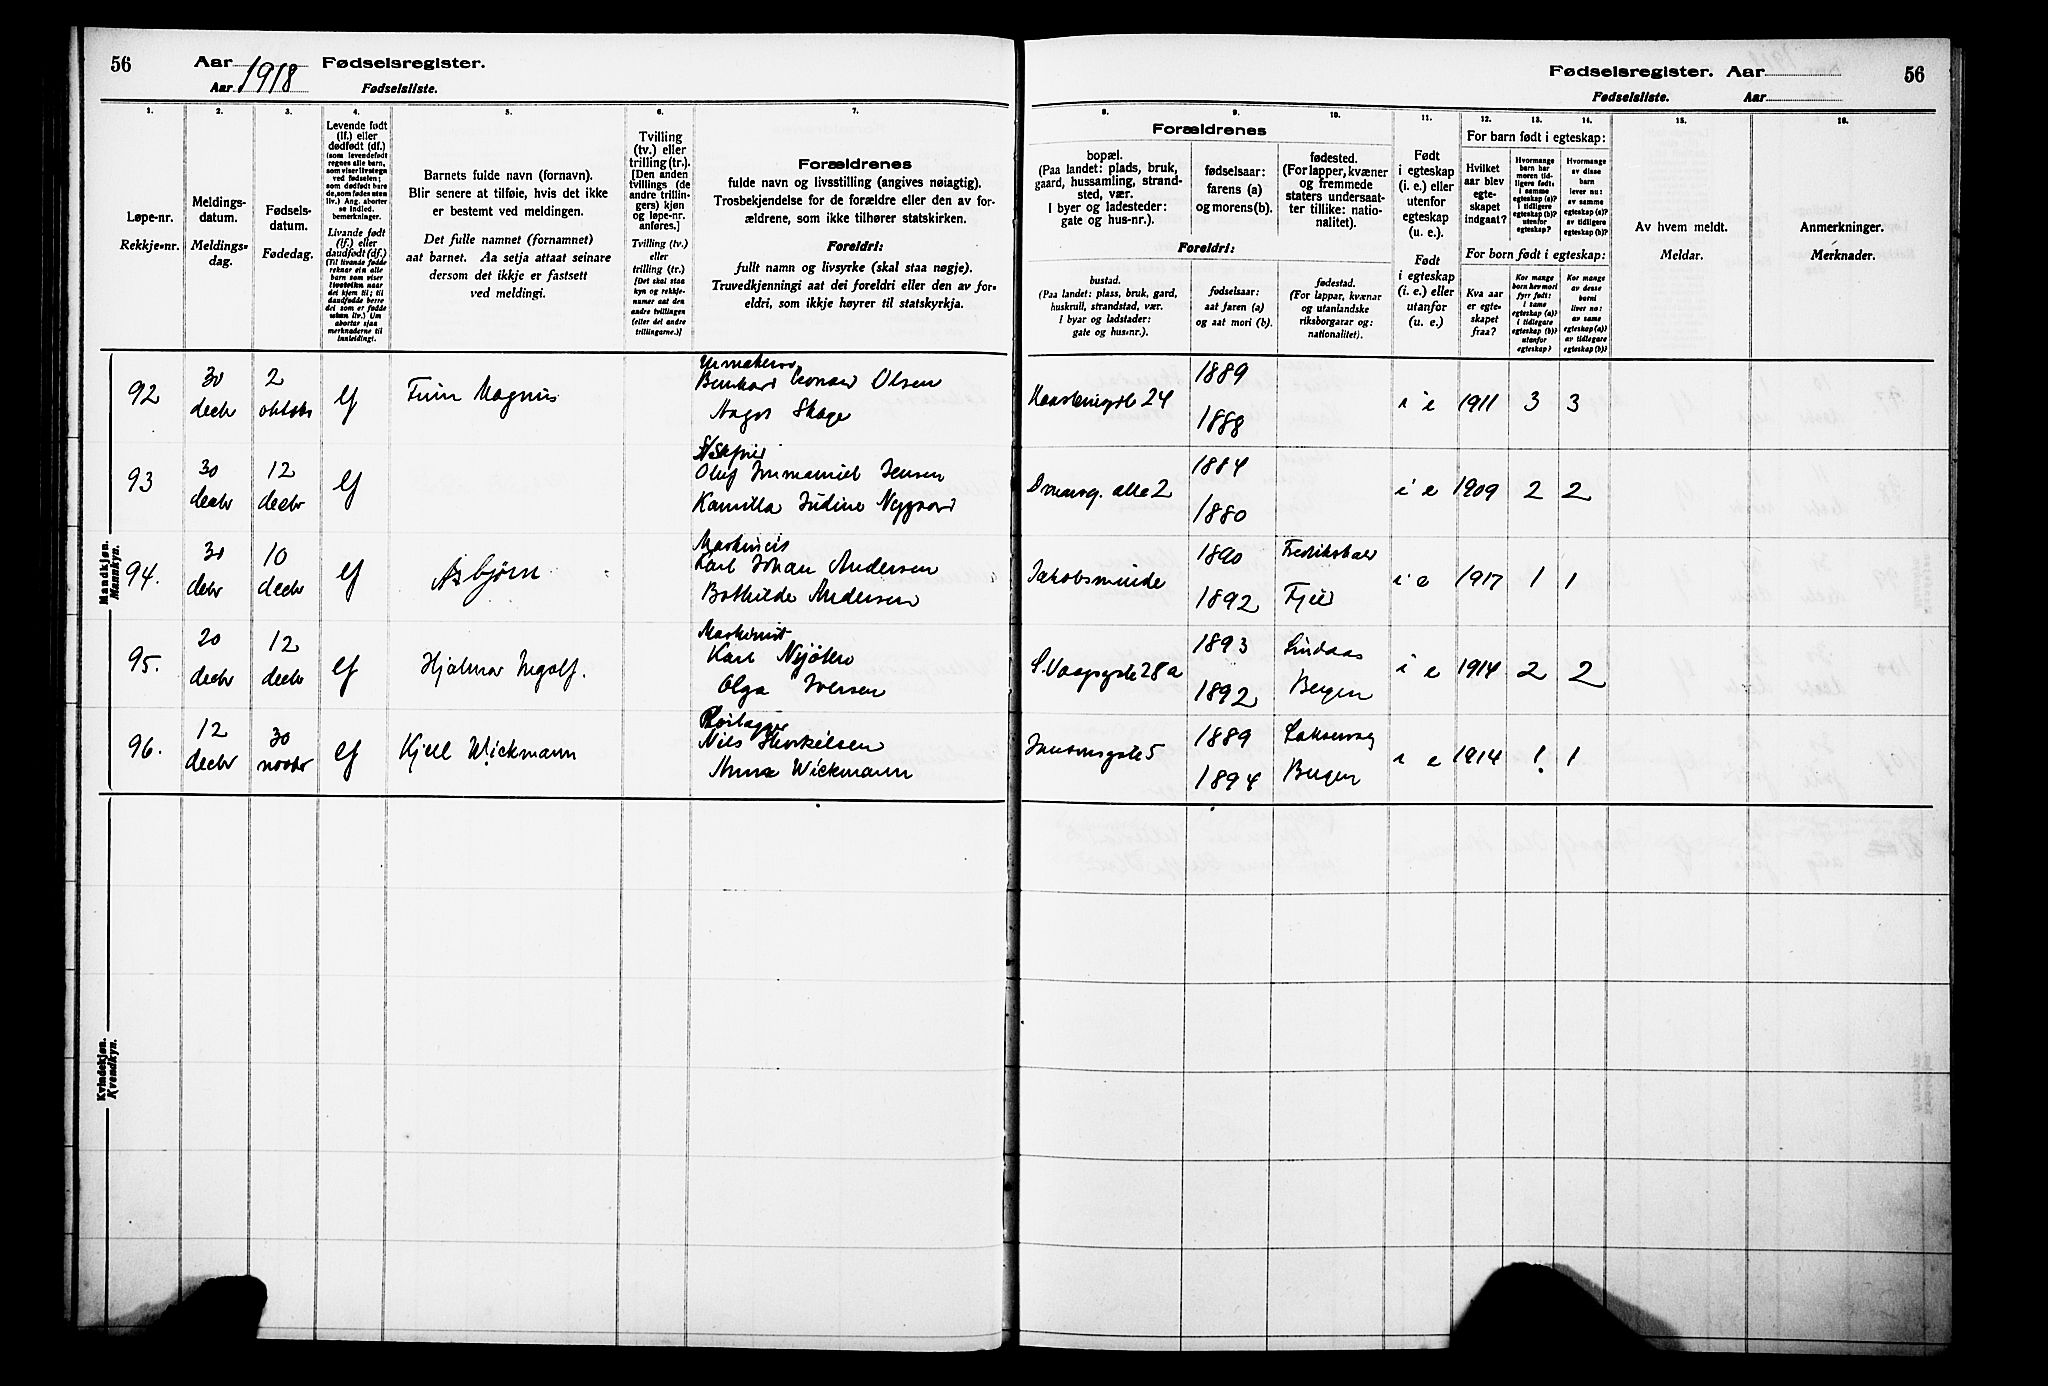 56 Aar 1918 Fødselsregister.
Aar Fødselsliste.
1. 2. 3. 4. 5. 6. 7.
Løpe-nr.
Rekkje-nr.
Meldings-
datum.
Meldings-
dag.
Fødsels-
datum.
Fødedag.
Levende født
(lf.) eller
dødfødt (df.)
(som levendefødt
regnes alle barn,
som viser livstegn
ved fødselen;
som dødfødt bare
de, som fødes uten
liv.) Ang. aborter
se indled.
bemerkninger.
Livande født
(lf.) eller
daudfødt (df.)
(Til livande fødde
reknar ein alle
barn som viser
livsteikn naar
dei kjem til; til
daudfødde berre
dei som er fødde
utan liv.) Um
abortar sjaa
merknaderne til
innleiding!.
Barnets fulde navn (fornavn).
Blir senere at tilføie, hvis det ikke
er bestemt ved meldingen.
Det fulle namnet (fornamnet)
aat barnet. Aa setja attaat seinare
dersom det ikkje er fastsett
ved meldingi.
Tvilling
(tv.) eller
trilling (tr.).
[Den anden
tvillings (de
andre trillin-
gers) kjøn
og løpe-nr.
anføres.]
Tvilling (tv.)
eller
trilling (tr.)
[Det skal staa
kyn og rekkje-
numer aat den
andre tvillingen
(eller dei andre
trillingarne.)]
Forældrenes
fulde navn og livsstilling (angives nøiagtig).
Trosbekjendelse for de forældre eller den av for-
ældrene, som ikke tilhører statskirken.
Foreldri:
fullt namn og livsyrke (skal staa nøgje).
Truvedkjenningi aat dei foreldri eller den av for-
eldri, som ikkje høyrer til statskyrkja.
Mandkjøn.
Mannkyn.
92 30 decbr 2 oktobr lf Finn Magnus
Urmaker
Olsen
Skage
93 30 decbr 12 decbr lf
Oluf Immanuel Jensen
Kamilla Judine Nygaard
94. 30 decbr 10 decbr lf Asbjørn
Karl Johan Andersen
Bothilde Andersen
95. 20 decbr 12 decbr lf Hjalmar Ingolf.
Maskinist
Karl
Olga Iversen
96. 12 decbr 30 novbr lf Kjell Wickmann
Nils Thorkelsen
Anna Wickmann
Kvindekjøn.
Kvendkyn.
Fødselsregister. Aar 56
Fødselsliste. Aar
8. 9. 10. 11. 12. 13. 14. 15. 16.
Forældrenes
bopæl.
(Paa landet: plads, bruk,
gaard, hussamling, strand-
sted, vær.
I byer og ladesteder:
gate og hus-nr.).
fødselsaar:
farens (a)
og morens (b).
fødested.
(For lapper, kvæner
og fremmede
staters undersaat-
ter tillike: natio-
nalitet).
Foreldri:
bustad.
(Paa landet: plass, bruk, gard,
huskrull, strandstad, vær.
I byar og ladstader:
gate og hus-nr.).
fødselsaar:
aat faren (a)
og aat mori (b).
fødestad.
(For lappar, kvænar
og utanlandske
riksborgarar og:
nationalitet).
Født
i egteskap
(i. e.) eller
utenfor
egteskap
(u. e.).
Født
i egteskap
(i. e.) eller
utanfor
(u. e.).
For barn født i egteskap:
Hvilket
aar blev
egte-
skapet
indgaat?
Hvormange
barn har
moren tid-
ligere født:
i samme
egteskap (a)?
i tidligere
egteskap (b)?
utenfor
egteskap?
Hvormange
av disse
barn
lever nu:
av samme
egteskap (a)?
av tidligere
egteskap (b)?
For born født i egteskap:
Kva aar
er egte-
skapet
fraa?
Kor mange
born hev mori
fyrr født:
i same
egteskap (a)?
i tidlegare
egteskap (b)?
utanfor
egteskap?
Kor mange
av desse
borni
liver no:
av same
egteskap (a)?
av tidlegare
egteskap (b)?
Av hvem meldt.
Meldar.
Anmerkninger.
Merknader.
24 1889 1888 i e 1911 3 3
alle 2 1884 1880 i e 1909 2 2
Jakobsminde 1890 1892 Fredrikshald Fjeld i e 1917 1 1
28a 1893 1892 Lindaas Bergen i e 1914 2 2
5 1889 1894 Laksevaag Bergen i e 1914 1 1